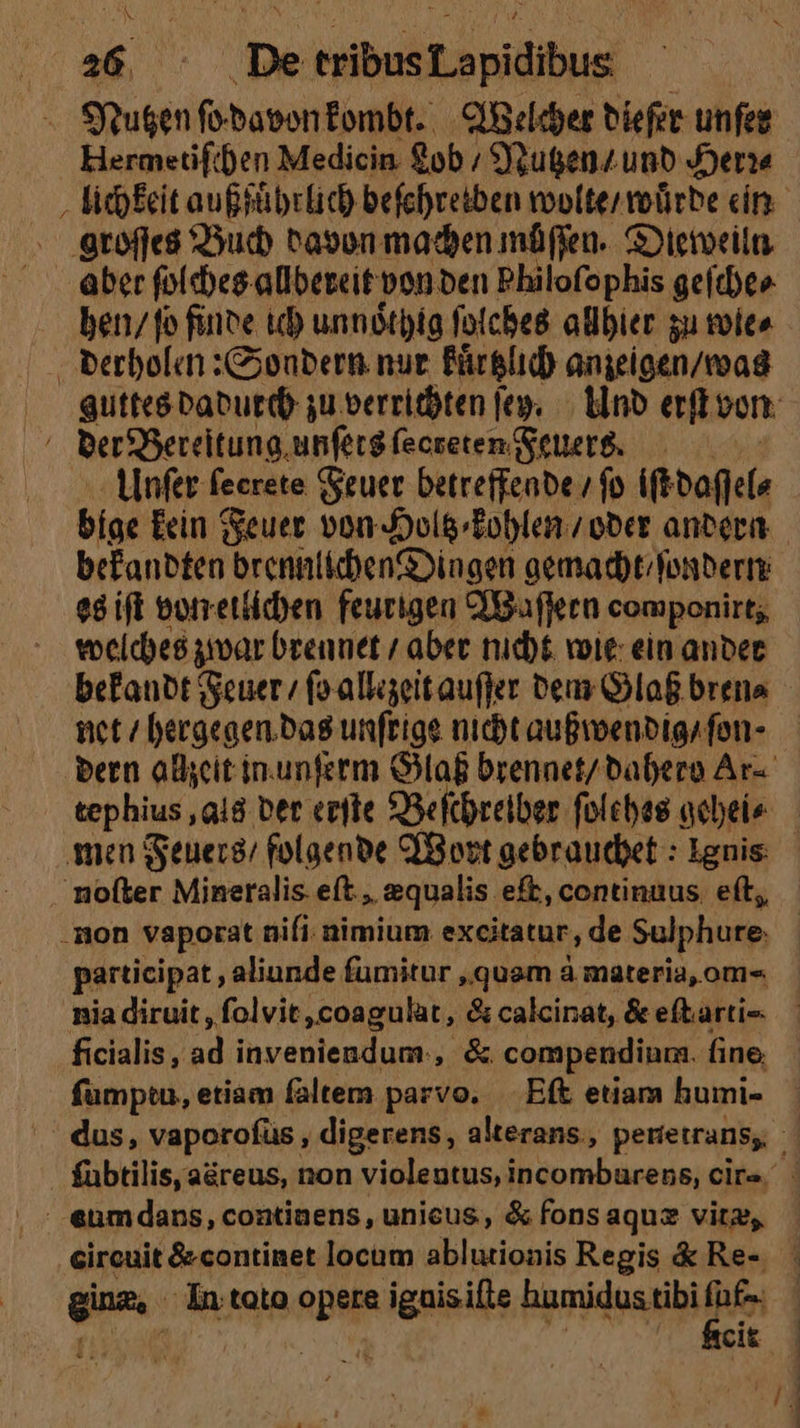 26 De tribus Lapidibus
Nutzen ſo davon kombt. Welcher dieſer unſer
Hermetiſchen Medicin Lob / Nutzen / und Herꝛ⸗
lichkeit außfuͤhrlich beſchreiben wolte / wuͤrde ein
groſſes Buch davon machen muͤſſen. Dieweiln
aber ſolches allbereit von den Philoſophis geſche⸗
hen / ſo finde ich unnoͤthig ſolches allhier zu wie⸗
derholen: Sondern nur kuͤrtzlich anzeigen / was
guttes dadurch zu verrichten ſey. Und erſt von
der Bereitung unſers ſecreten Feuers.
Unſer ſecrete Feuer betreffende / ſo iſt daſſel⸗
bige kein Feuer von Holtz⸗kohlen / oder andern
bekandten brennlichen Dingen gemacht / ſondern
es iſt von etlichen feurigen Waſſern componirt,
welches zwar brennet / aber nicht wie ein ander
bekandt Feuer / ſo allezeit auſſer dem Glaß bren⸗
net / hergegen das unſrige nicht außwendig / ſon-
dern allzeit in unſerm Glaß brennet / dahero Ar-
tephius, als der erſte Beſchreiber ſolches gehei⸗
men Feuers / folgende Wort gebrauchet: Ignis
noſter Mineralis eſt, æqualis eſt, continuus eſt,
non vaporat niſi nimium excitatur, de Sulphure
participat, aliunde ſumitur, quam à materia, om-
nia diruit, ſolvit, coagulat, & calcinat, & eſt arti-
ficialis, ad inveniendum, & compendium ſine
ſumptu, etiam ſaltem parvo. Eſt etiam humi-
dus, vaporoſus, digerens, alterans, penetrans,
ſubtilis, aëreus, non violentus, incomburens, cir-
cumdans, continens, unicus, & fons aquæ vitæ,
circuit & continet locum ablutionis Regis & Re-
ginæ. In toto opere ignis iſte humidus tibi ſuf-
ficit